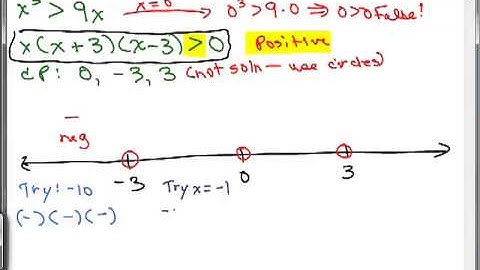 x³ > 9x x=0 0³ > 9·0 ⇒ 0>0 False!
x(x+3)(x-3) > 0 Positive
CP: 0, -3, 3 (not soln — use circles)
—
neg
-3 0 3
Try! -10 Try x = -1
(-)(-)(-) -